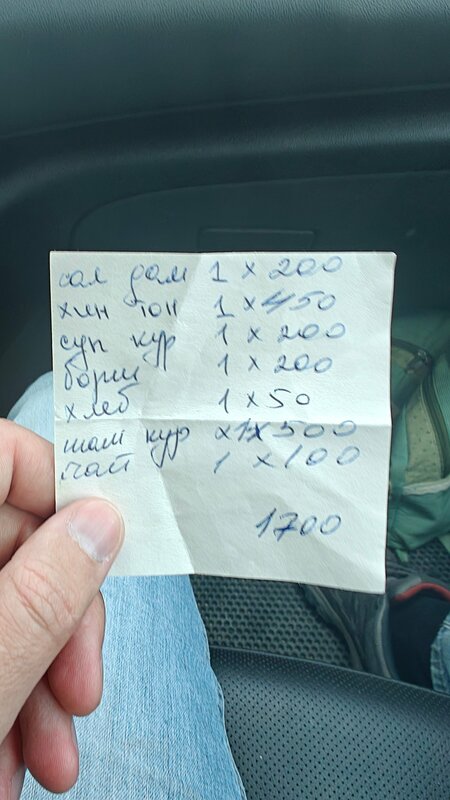 сал дом 1 x 200
хин гон 1 x 450
суп кур 1 x 200
борщ 1 x 200
хлеб 1 x 50
шаш кур 1x 500
чай 1 x 100
1700